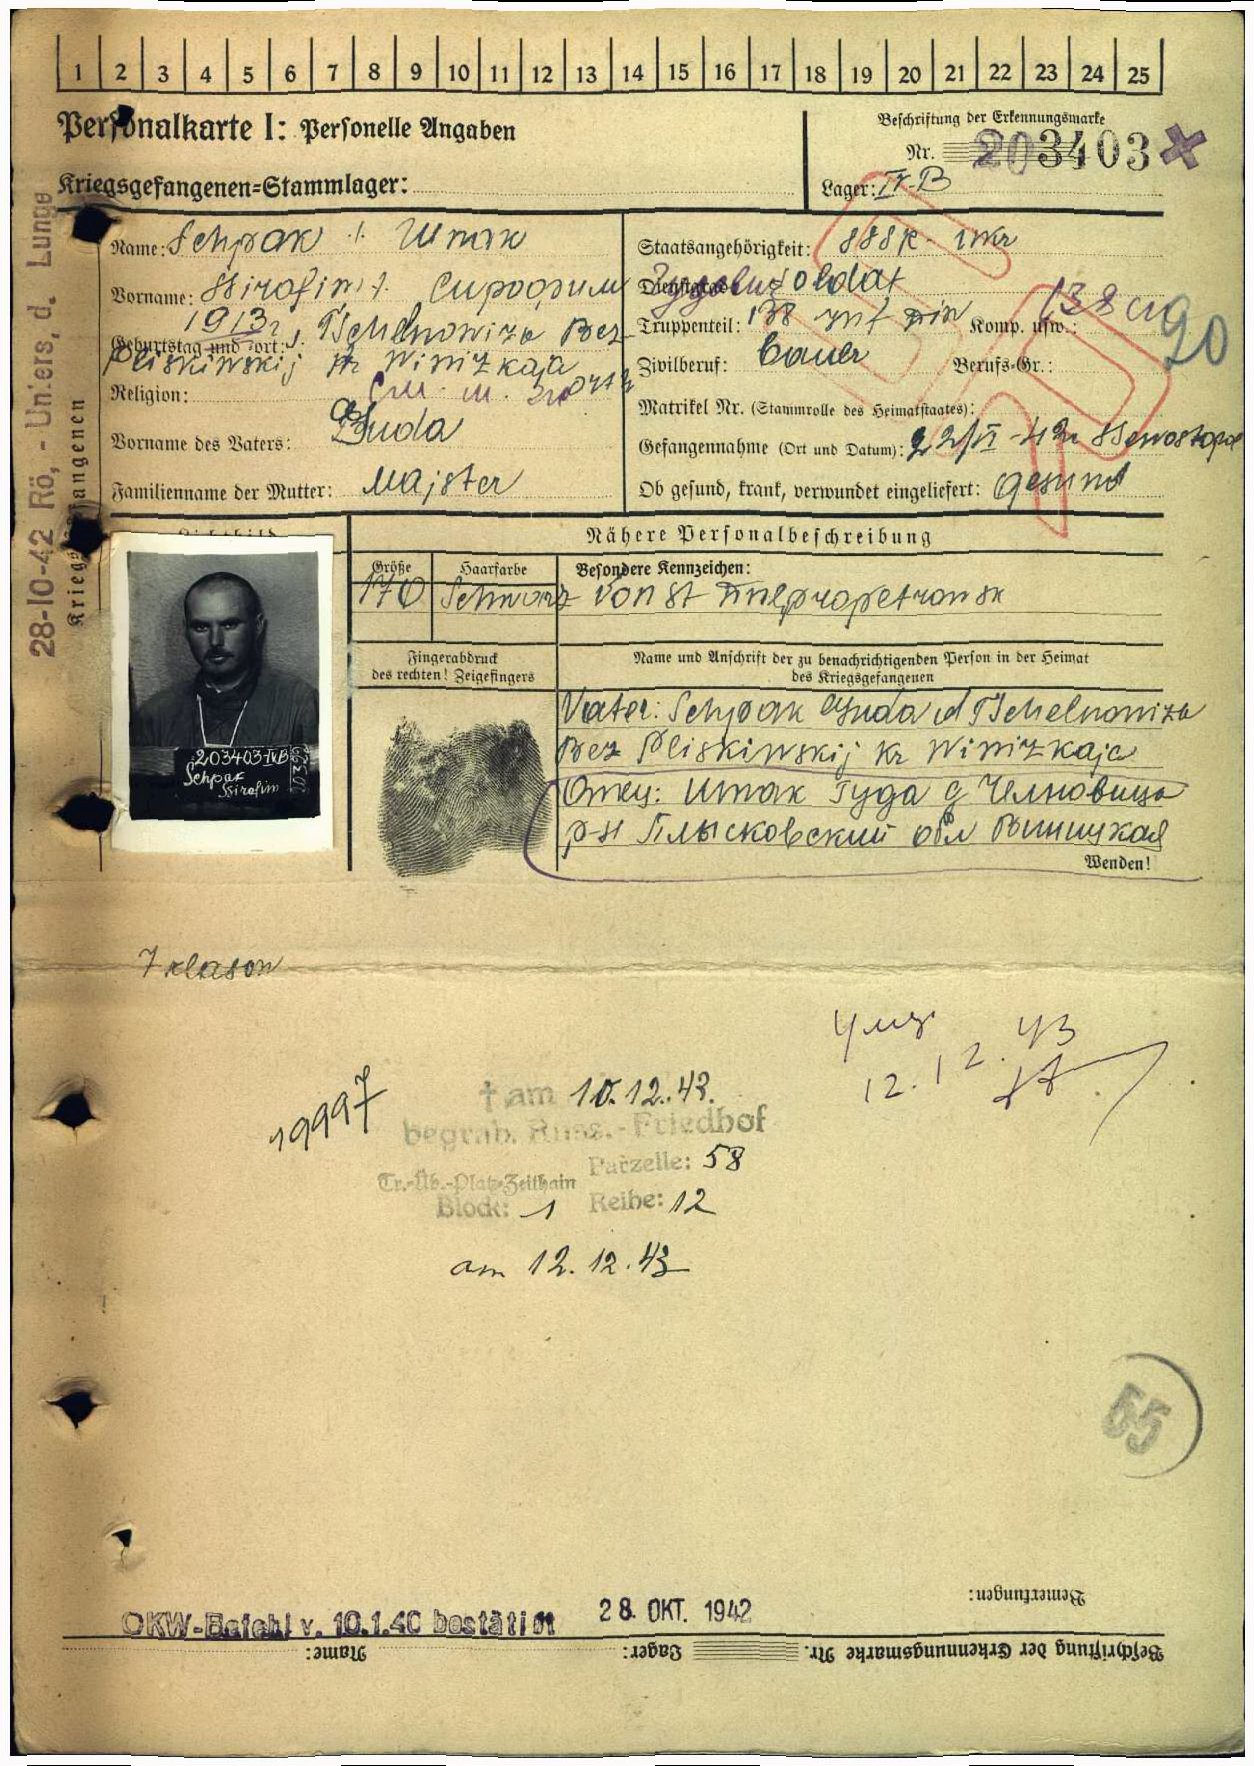 1 2 3 4 5 6 7 8 9 10 11 12 13 14 15 16 17 18 19 20 21 22 23 24 25
Personalkarte I: Personelle Angaben
Beschriftung der Erkennungsmarke
Nr. 203403
Kriegsgefangenen=Stammlager:
Lager: IV-B
28-10-42 Rö, - Uniers, d. Lunge
Kriegsgefangenen
Name: Schpak Шпак
Vorname: Ssirafim
Geburtstag und =ort: 1913
Pliskinskij Kr Winizkaja
Religion:
Vorname des Vaters: Guda
Familienname der Mutter: Majster
Staatsangehörigkeit:
Dienstgrad: Soldat
Truppenteil: 138 Komp. usw.: 138
90
Zivilberuf: Bauer Berufs=Gr.:
Matrikel Nr. (Stammrolle des Heimatstaates):
Gefangennahme (Ort und Datum): Ssewostopol
Ob gesund, krank, verwundet eingeliefert: gesund
Lichtbild
Nähere Personalbeschreibung
Größe Haarfarbe Besondere Kennzeichen:
170 Schwarz von St Dnepropetrowsk
203403 IVB
Schpak
Ssirafim
Fingerabdruck
des rechten! Zeigefingers
Name und Anschrift der zu benachrichtigenden Person in der Heimat
des Kriegsgefangenen
Vater: Schpak Guda d Tschelnowiza
Bez Pliskiwskij Kr Winizkaja
Отец: Шпак Гуда д Челновица
р-н Плысковский обл Виницкая
Wenden!
7 klason
12.12.43
19997
† am 10.12.43.
begrab. Russ.-Friedhof
Parzelle: 58
Tr.=Üb.=Platz=Zeithain
Block: 1 Reihe: 12
am 12.12.43
55
Bemerkungen:
OKW-Befehl v. 10.1.40 bestätigt 28. OKT. 1942
Beschriftung der Erkennungsmarke Nr. Lager: Name: